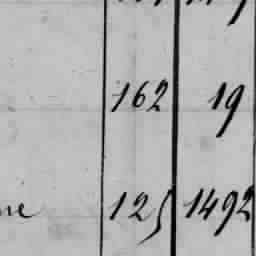 162 19
ne 125 1492